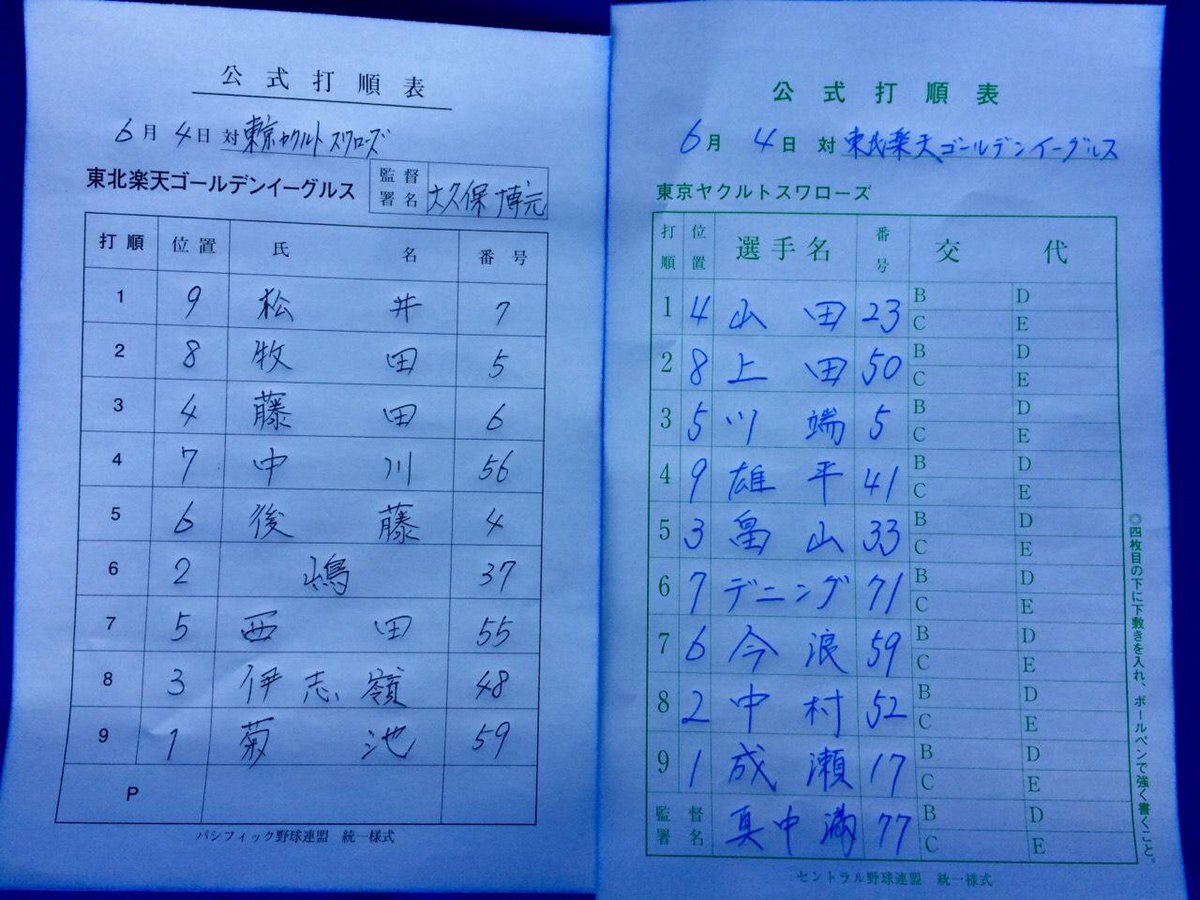 公式打順表
6月4日 対 東京ヤクルトスワローズ
東北楽天ゴールデンイーグルス 監督署名 大久保博元
打順 位置 氏名 番号
1 9 松井 7
2 8 牧田 5
3 4 藤田 6
4 7 中川 56
5 6 後藤 4
6 2 嶋 37
7 5 西田 55
8 3 伊志嶺 48
9 1 菊池 59
P
パシフィック野球連盟 統一様式
公式打順表
6月4日 対 東北楽天ゴールデンイーグルス
東京ヤクルトスワローズ
打順 位置 選手名 番号 交代
1 4 山田 23 B D
C E
2 8 上田 50 B D
C E
3 5 川端 5 B D
C E
4 9 雄平 41 B D
C E
5 3 畠山 33 B D
C E
6 7 デニング 71 B D
C E
7 6 今浪 59 B D
C E
8 2 中村 52 B D
C E
9 1 成瀬 17 B D
C E
監督署名 真中満 77 B D
C E
セントラル野球連盟 統一様式
◎四枚目の下に下敷きを入れ、ボールペンで強く書くこと。